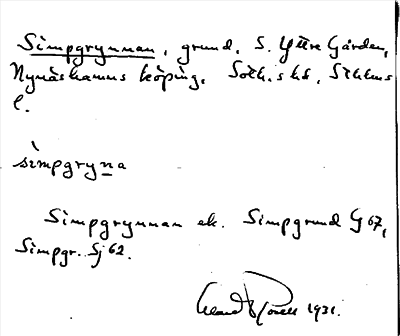 Simpgrynnan, grund, S. Yttre Gården,
Nynäshamns köping, Soth. skd, Sthlms
l.
simpgryna
Simpgrynnan ek. Simpgrund G 67,
Simpgr. Sj 62.
1931.